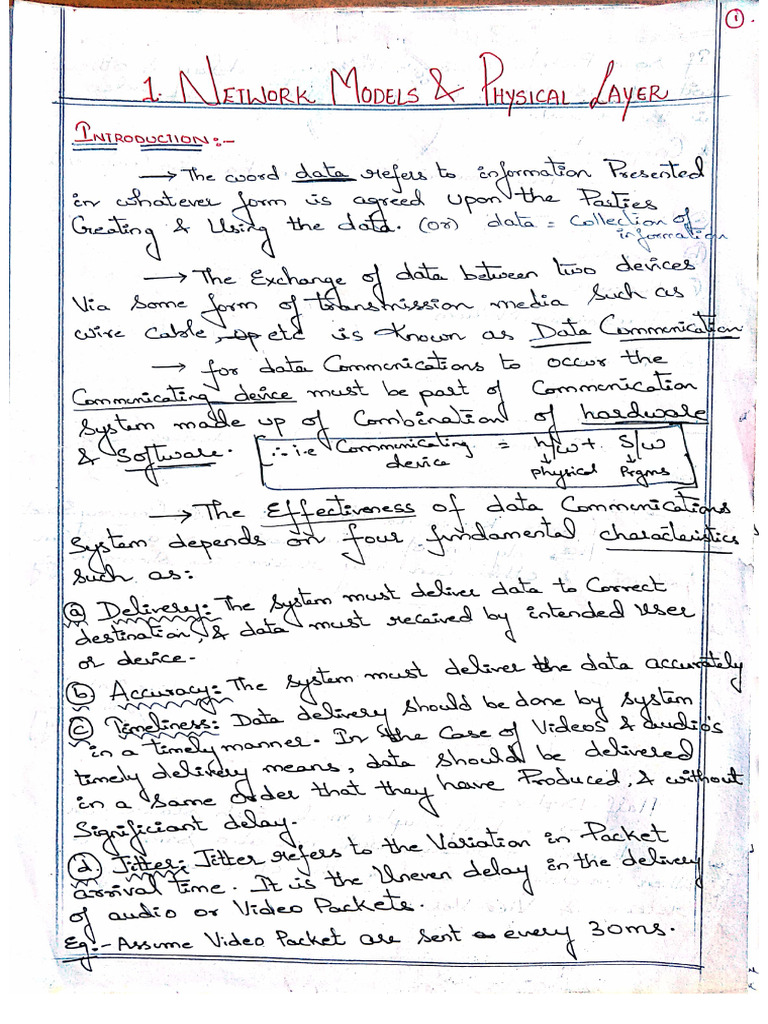 1
1. NETWORK MODELS & PHYSICAL LAYER
INTRODUCTION:-
→ The word data refers to information Presented
in whatever form is agreed upon the Parties
Creating & Using the data. (or) data = Collection of
information
→ The Exchange of data between two devices
Via some form of transmission media such as
wire cable, etc is known as Data Communication
→ for data Communications to occur the
Communicating device must be part of Communication
system made up of Combination of hardware
& Software. ∴ i.e Communicating device = h/w + S/w
physical Prgms
→ The Effectiveness of data Communications
System depends on four fundamental characteristics
such as:
(a) Delivery: The system must deliver data to Correct
destination, & data must received by intended User
or device.
(b) Accuracy: The system must deliver the data accurately
(c) Timeliness: Data delivery should be done by system
in a timely manner. In the Case of Videos & audio's
timely delivery means, data should be delivered
in a same order that they have Produced, & without
Significiant delay.
(d) Jitter: Jitter refers to the Variation in Packet
arrival time. It is the Uneven delay in the delivery
of audio or Video Packets.
Eg:- Assume Video Packet are sent every 30ms.